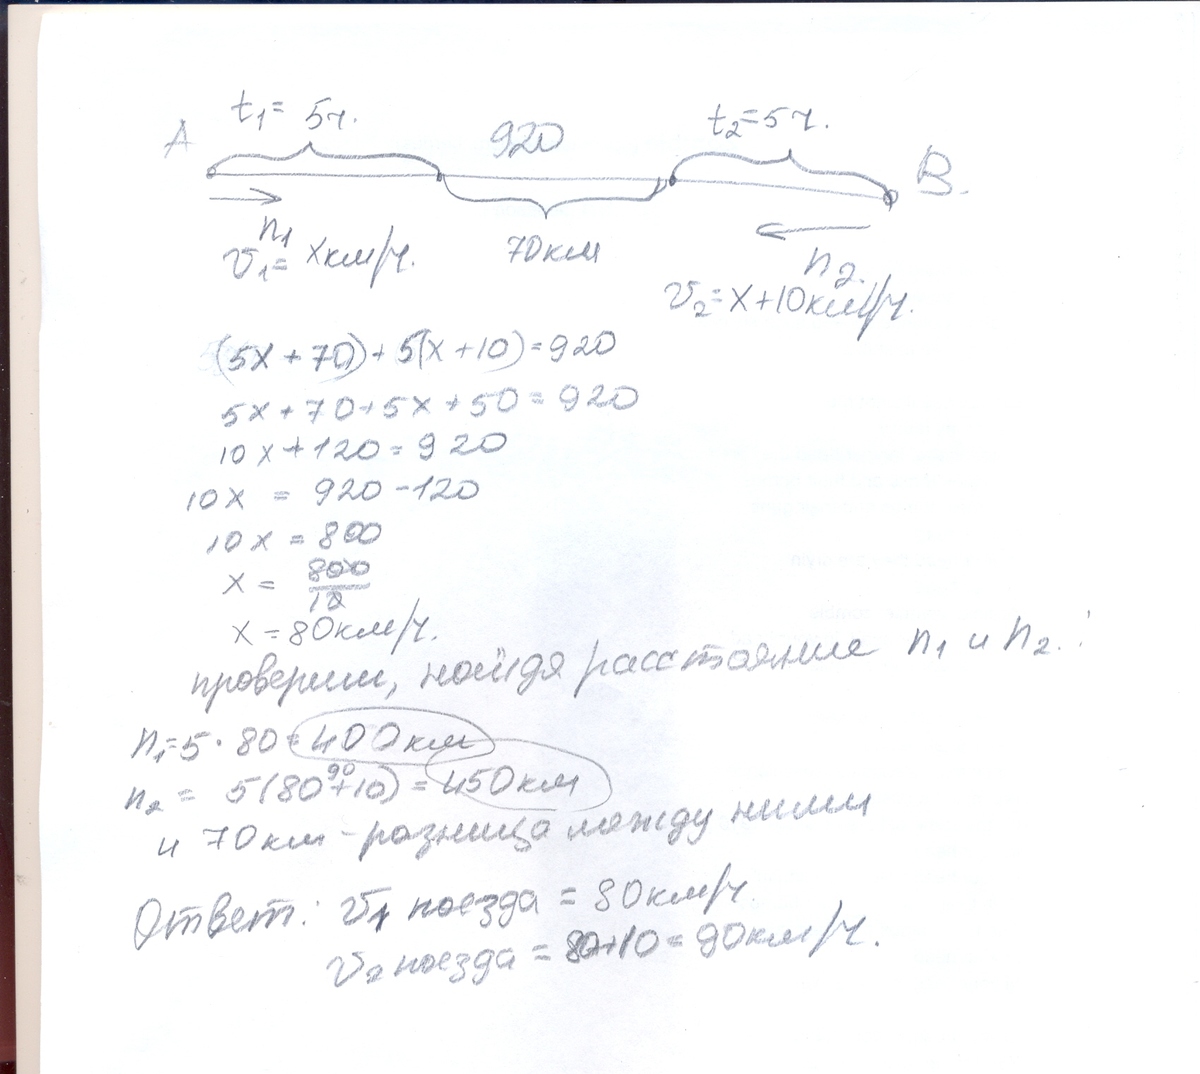 t₁= 5ч.
t₂=5ч.
A
920
B.
п₁
v₁= xкм/ч.
70км
п₂.
v₂=x+10км/ч.
(5x+70)+5(x+10)=920
5x+70+5x+50=920
10x+120=920
10x = 920-120
10x = 800
x = 800/10
x = 80км/ч.
проверим, найдя расстояние п₁ и п₂.:
п₁=5·80=400км
90
п₂ = 5(80+10)=450км
и 70км - разница между ними
Ответ: v₁ поезда = 80км/ч.
v₂ поезда = 80+10=90км/ч.